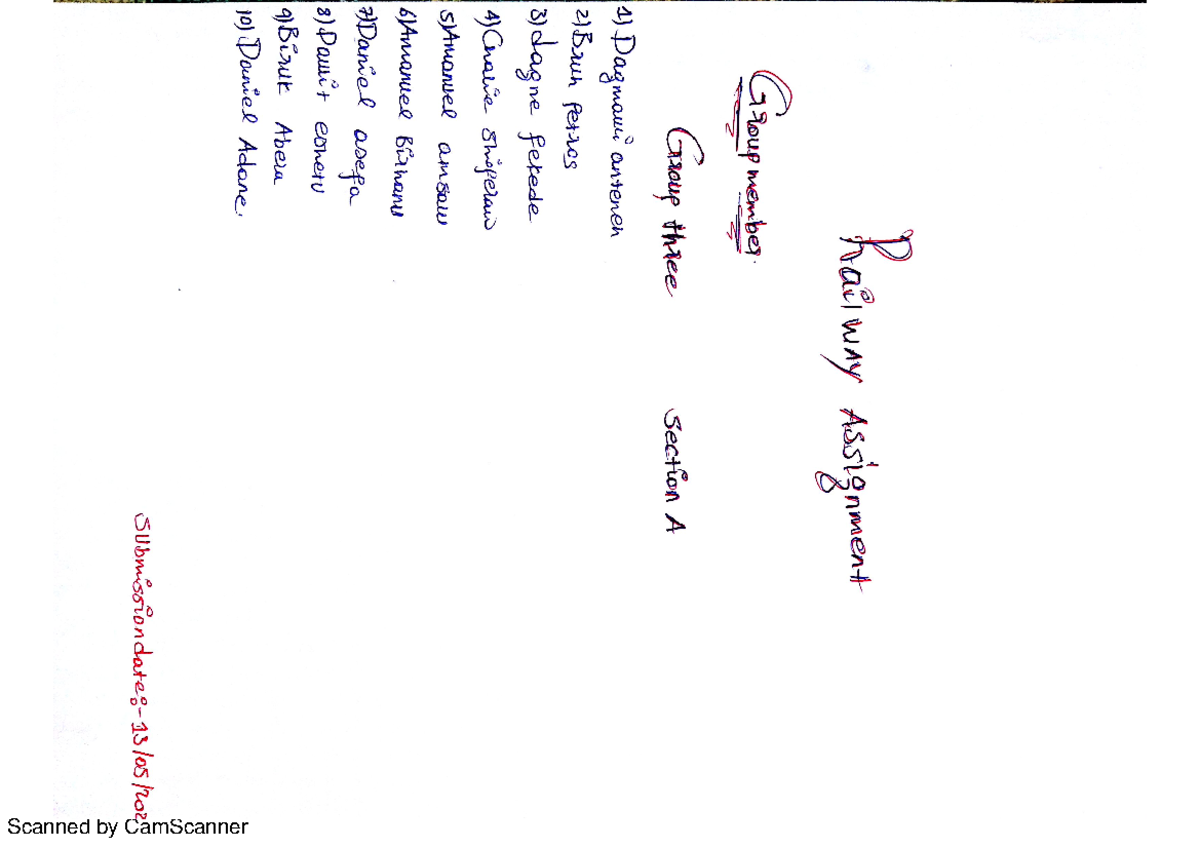 Railway Assignment
Group member.
Group three Section A
1) Dagmawi anteneh
2) Bruh petros
3) dagne fekede
4) Chalie shiferaw
5) Amanuel amsalu
6) Amanuel Birhanu
7) Daniel asefa
8) Dawit eshetu
9) Biruk Abera
10) Daniel Adane.
Submission date:- 13/05/202
Scanned by CamScanner